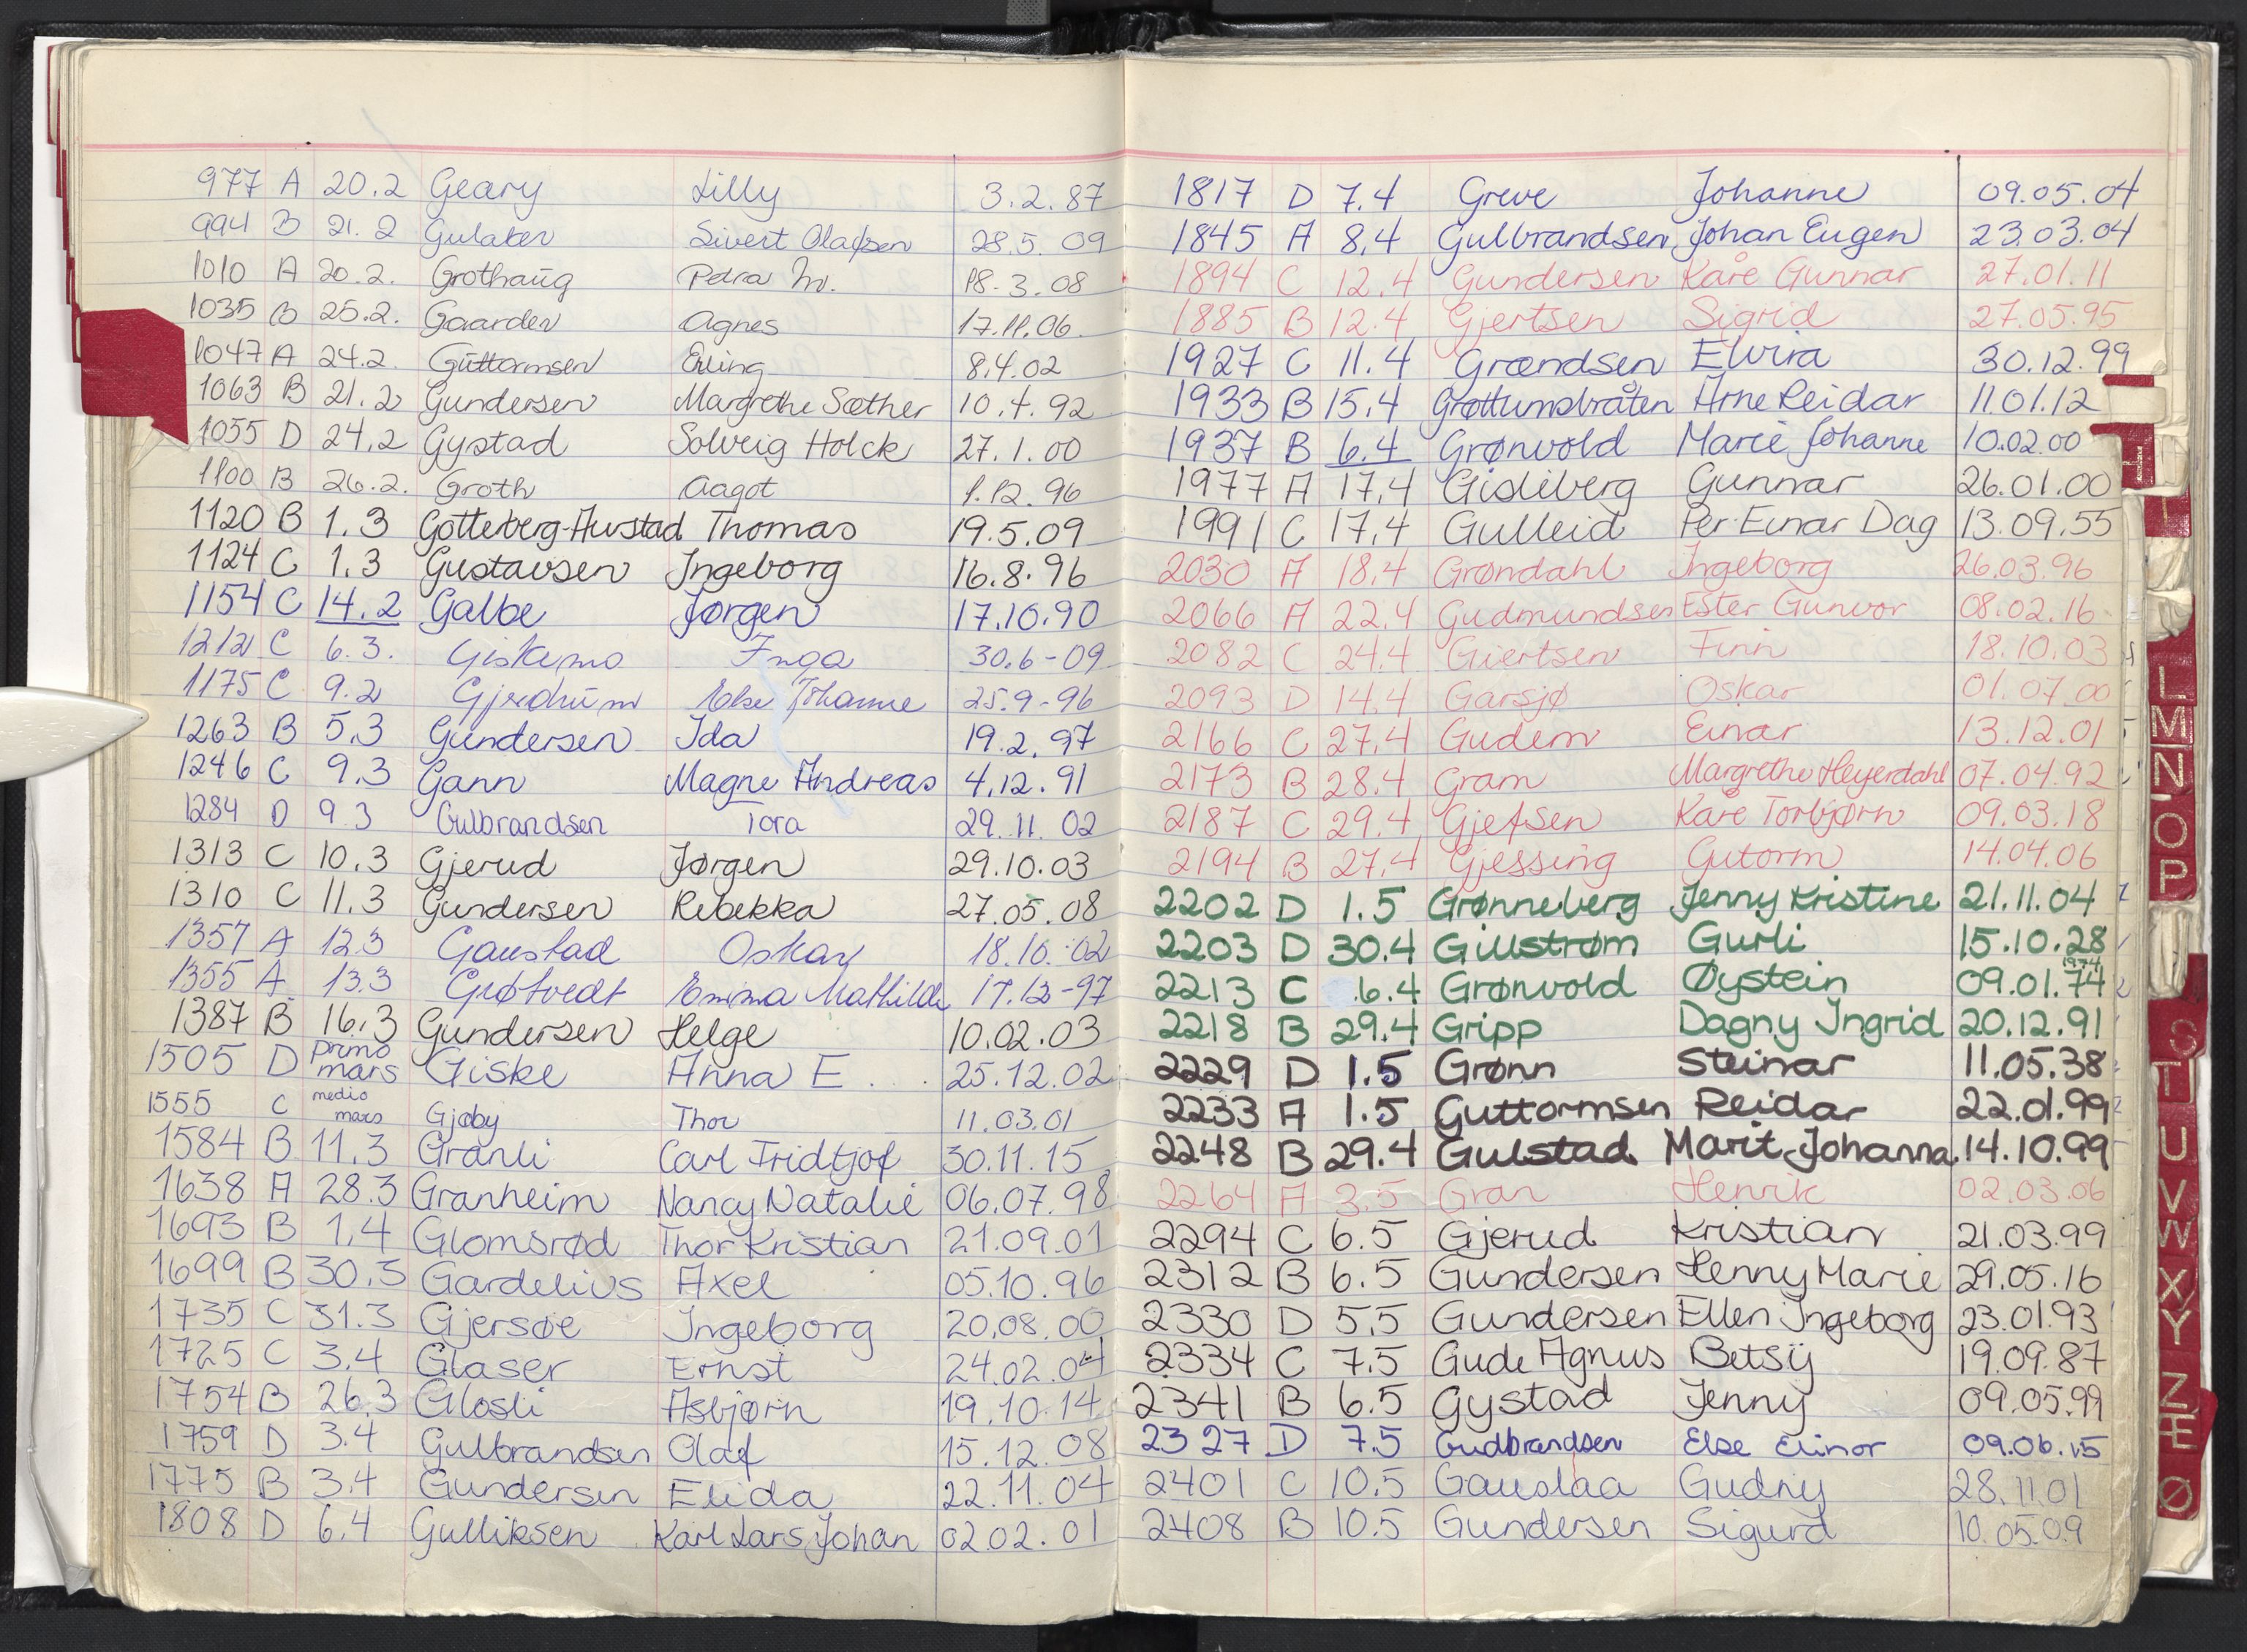 977 A 20.2 Geary Lilly 3.2.87
994 B 21.2 Gulaker Sivert Olafsen 28.5.09
1010 A 20.2. Grothaug Petra M. 18.3.08
1035 B 25.2. Gaarder Agnes 17.11.06
1047 A 24.2. Guttormsen Erling 8.4.02
1063 B 21.2 Gundersen Margrethe Sæther 10.4.92
1055 D 24.2 Gystad Solveig Holck 27.1.00
1100 B 26.2. Groth Aagot 1.12.96
1120 B 1.3 Gotteberg-Aurstad Thomas 19.5.09
1124 C 1.3 Gustavsen Ingeborg 16.8.96
1154 C 14.2 Galbe Jørgen 17.10.90
1212 C 6.3. Giskemo Inga 30.6-09
1175 C 9.2 Gjerdrum Else Johanne 25.9-96
1263 B 5.3 Gundersen Ida 19.2.97
1246 C 9.3 Gann Magne Andreas 4.12.91
1284 D 9.3 Gulbrandsen Tora 29.11.02
1313 C 10.3 Gjerud Jørgen 29.10.03
1310 C 11.3 Gundersen Rebekka 27.05.08
1357 A 12.3 Gaustad Oskar 18.10.-02
1355 A 13.3 Grøtvedt Emma Mathilde 17.12-97
1387 B 16.3 Gundersen Helge 10.02.03
1505 D primo mars Giske Anna E 25.12.02
1555 C medio mars Gjøby Thor 11.03.01
1584 B 11.3 Granli Carl Fridtjof 30.11.15
1638 A 28.3 Granheim Nancy Natalie 06.07.98
1693 B 1.4 Glomsrød Thor Kristian 21.09.01
1699 B 30.3 Gardelius Axel 05.10.96
1735 C 31.3 Gjersøe Ingeborg 20.08.00
1725 C 3.4 Glaser Ernst 24.02.04
1754 B 26.3 Glosli Asbjørn 19.10.14
1759 D 3.4 Gulbrandsen Olaf 15.12.08
1775 B 3.4 Gundersen Elida 22.11.04
1808 D 6.4 Gulliksen Karl Lars Johan 02.02.01
1817 D 7.4 Greve Johanne 09.05.04
1845 A 8.4 Gulbrandsen Johan Eugen 23.03.04
1894 C 12.4 Gundersen Kåre Gunnar 27.01.11
1885 B 12.4 Gjertsen Sigrid 27.05.95
1927 C 11.4 Grændsen Elvira 30.12.99
1933 B 15.4 Grøttumsbråten Arne Reidar 11.01.12
1937 B 6.4 Grønvold Marie Johanne 10.02.00
1977 A 17.4 Gisleberg Gunnar 26.01.00
1991 C 17.4 Gulleid Per Einar Dag 13.09.55
2030 A 18.4 Grøndahl Ingeborg 26.03.96
2066 A 22.4 Gudmundsen Ester Gunvor 08.02.16
2082 C 24.4 Giertsen Finn 18.10.03
2093 D 14.4 Garsjø Oskar 01.07.00
2166 C 27.4 Gudem Einar 13.12.01
2173 B 28.4 Gram Margrethe Heyerdahl 07.04.92
2187 C 29.4 Gjefsen Kåre Torbjørn 09.03.18
2194 B 27.4 Gjessing Gutorm 14.04.06
2202 D 1.5 Grønneberg Jenny Kristine 21.11.04
2203 D 30.4 Gillstrøm Gurli 15.10.28
1974
2213 C 6.4 Grønvold Øystein 09.01.74
2218 B 29.4 Gripp Dagny Ingrid 20.12.91
2229 D 1.5 Grønn Steinar 11.05.38
2233 A 1.5 Guttormsen Reidar 22.01.99
2248 B 29.4 Gulstad Marit Johanna 14.10.99
2264 A 3.5 Gran Henrik 02.03.06
2294 C 6.5 Gjerud Kristian 21.03.99
2312 B 6.5 Gundersen Henny Marie 29.05.16
2330 D 5.5 Gundersen Ellen Ingeborg 23.01.93
2334 C 7.5 Gude Agnus Betsy 19.09.87
2341 B 6.5 Gystad Jenny 09.05.99
2327 D 7.5 Gudbrandsen Else Elinor 09.06.15
2401 C 10.5 Gauslaa Gudny 28.11.01
2408 B 10.5 Gundersen Sigurd 10.05.09
H
I
L
M
N
O
P
S
T
U
V
W
X
Y
Z
Æ
Ø